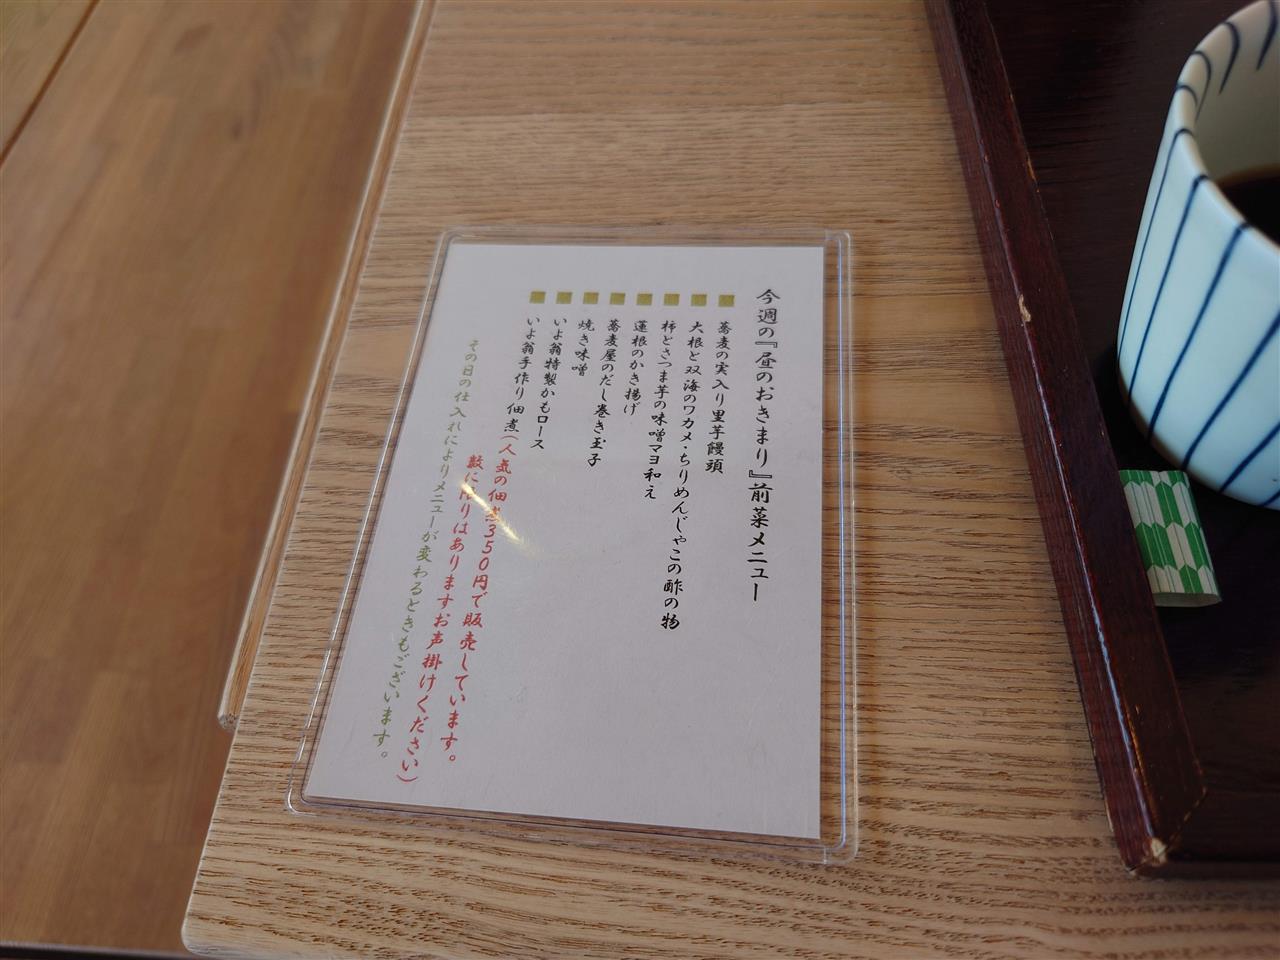 今週の『昼のおきまり』前菜メニュー
蕎麦の実入り里芋饅頭
大根と双海のワカメ・ちりめんじゃこの酢の物
柿とさつま芋の味噌マヨ和え
蓮根のかき揚げ
蕎麦屋のだし巻き玉子
焼き味噌
いよ翁特製かもロース
いよ翁手作り佃煮(人気の佃煮350円で販売しています。
数に限りはありますお声掛けください)
その日の仕入れによりメニューが変わるときもございます。